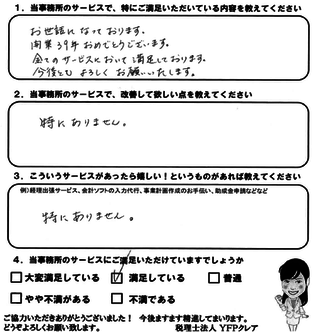 1．当事務所のサービスで、特にご満足いただいている内容を教えてください
お世話になっております。
開業39年おめでとうございます。
全てのサービスにおいて満足しております。
今後ともよろしくお願いいたします。
2．当事務所のサービスで、改善して欲しい点を教えてください
特にありません。
3．こういうサービスがあったら嬉しい！というものがあれば教えてください
例）経理出張サービス、会計ソフトの入力代行、事業計画作成のお手伝い、助成金申請などなど
特にありません。
4．当事務所のサービスにご満足いただけていますでしょうか
□大変満足している ☑満足している □普通
□やや不満がある □不満である
ご協力いただきありがとうございました！ 今後ますます精進してまいります。
どうぞよろしくお願い致します。 税理士法人 YFPクレア